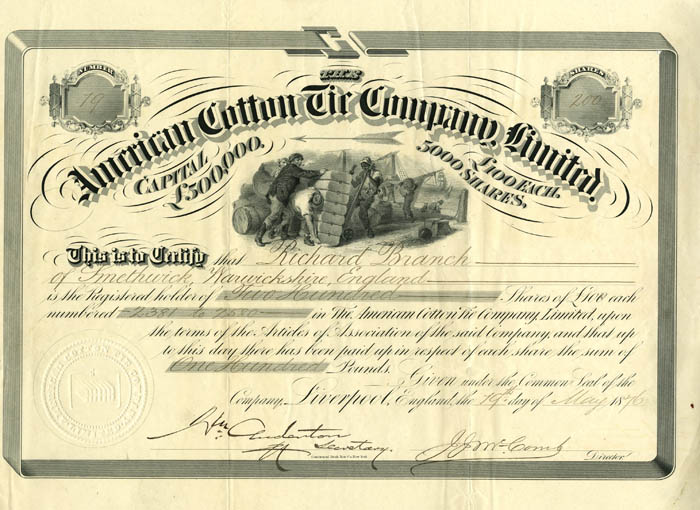 NUMBER
79
SHARES
200
THE
American Cotton Tie Company, Limited.
CAPITAL £500,000.
5000 SHARES, £100 EACH.
This is to Certify that Richard Branch
of Smethwick, Warwickshire, England
is the Registered holder of Two Hundred Shares of £100 each
numbered 2381 to 2580 in The American Cotton Tie Company, Limited, upon
the terms of the Articles of Association of the said Company, and that up
to this day there has been paid up in respect of each share the sum of
One Hundred Pounds.
Given under the Common Seal of the
Company, Liverpool, England, the 19th day of May
Wm Anderton
Secretary.
J.J. McComb
Director